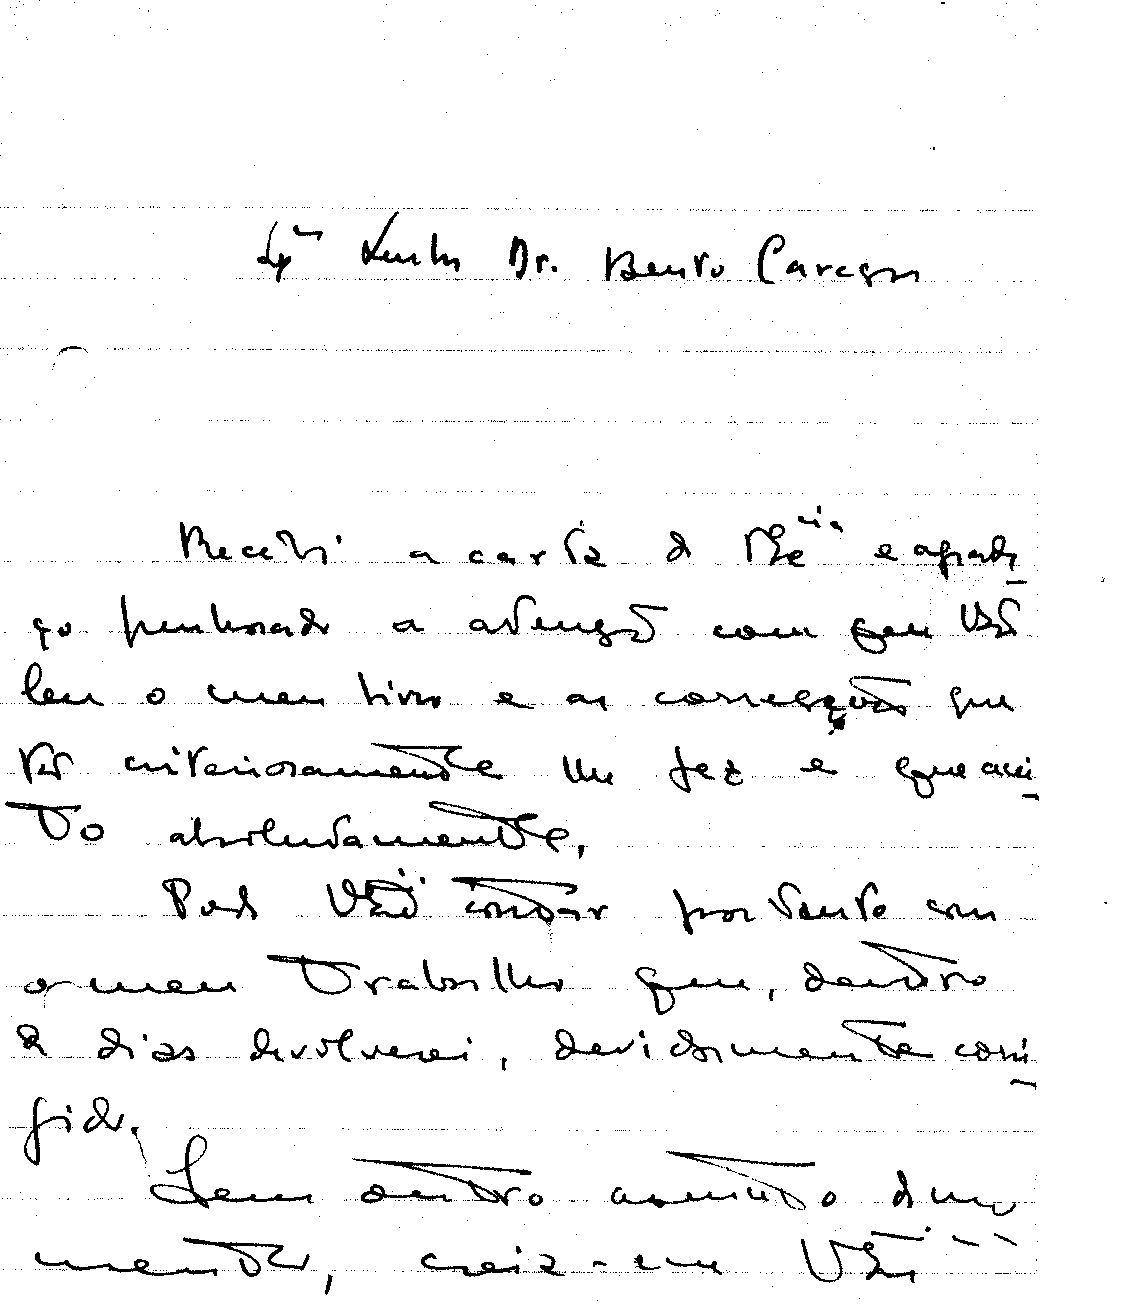 Senhor Dr. Bento Caraça
Recebi a carta de V. Ex.cia e agrade-
ço penhorado a atenção com que
leu o meu livro e as correcções que
tão criteriosamente me fez e que acei-
to absolutamente.
Pode contar portanto com
o meu trabalho que, dentro
de dias devolverei, devidamente corri-
gido.
Sem outro assunto de mo-
mento, creia-me V. Ex.